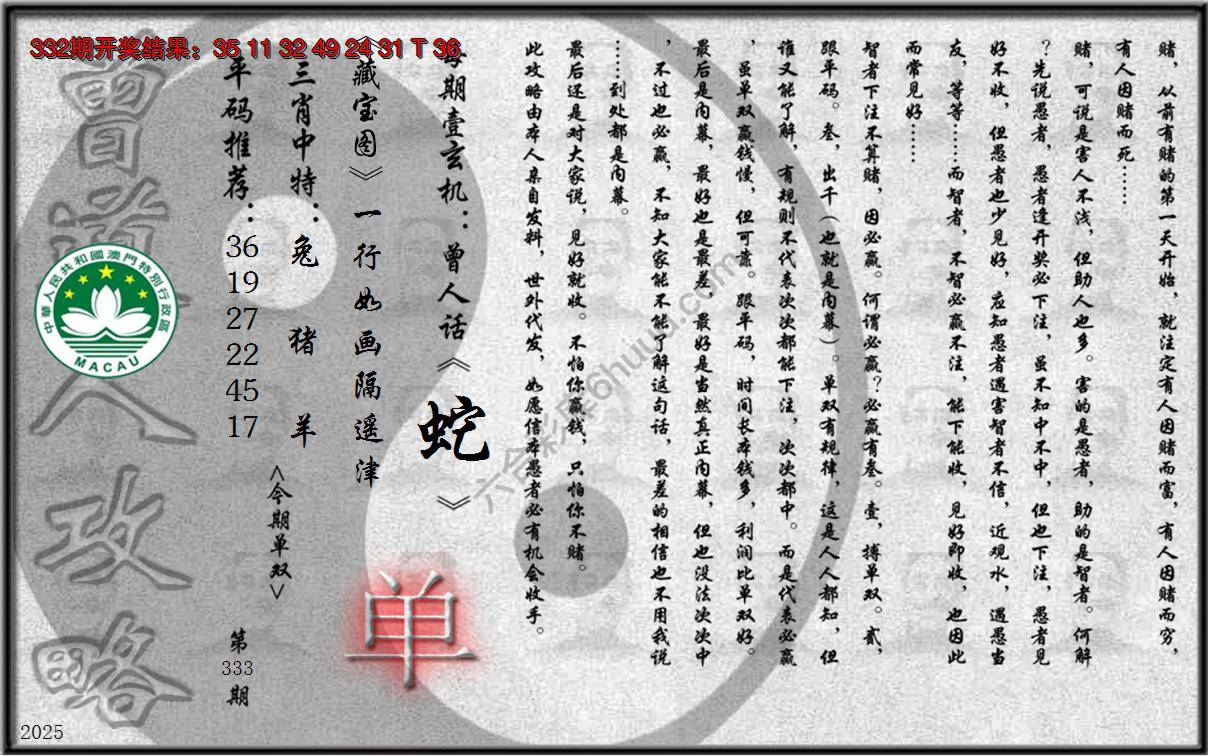 332期开奖结果：35 11 32 49 24 31 T 36
赌，从前有赌的第一天开始，就注定有人因赌而富，有人因赌而穷，
有人因赌而死……
赌，可说是害人不浅，但助人也多。害的是愚者，助的是智者。何解
？先说愚者，愚者逢开奖必下注，虽不知中不中，但也下注，愚者见
好不收，但愚者也少见好，应知愚者遇害智者不信，近观水，遇愚当
友，等等……而智者，不智必赢不注，能下能收，见好即收，也因此
而常见好……
智者下注不算赌，因必赢。何谓必赢？必赢有叁。壹，搏单双。贰，
跟平码。叁，出千（也就是内幕）。单双有规律，这是人人都知，但
谁又能了解，有规则不代表次次都能下注，次次都中。而是代表必赢
，虽单双赢钱慢，但可靠。跟平码，时间长本钱多，利润比单双好。
最后是内幕，最好也是最差，最好是当然真正内幕，但也没法次次中
，不过也必赢，不知大家能不能了解这句话，最差的相信也不用我说
……到处都是内幕。
最后还是对大家说，见好就收。不怕你赢钱，只怕你不赌。
此攻略由本人亲自发料，世外代发，如愿信本愚者必有机会收手。
每期壹玄机：曾人话《蛇》
《藏宝图》一行如画隔遥津
三肖中特：兔 猪 羊
平码推荐：
36
19
27
22
45
17
<今期单双>
单
第
333
期
曾道人攻略
中華人民共和國澳門特別行政區
MACAU
六合彩库6huuu.com
2025